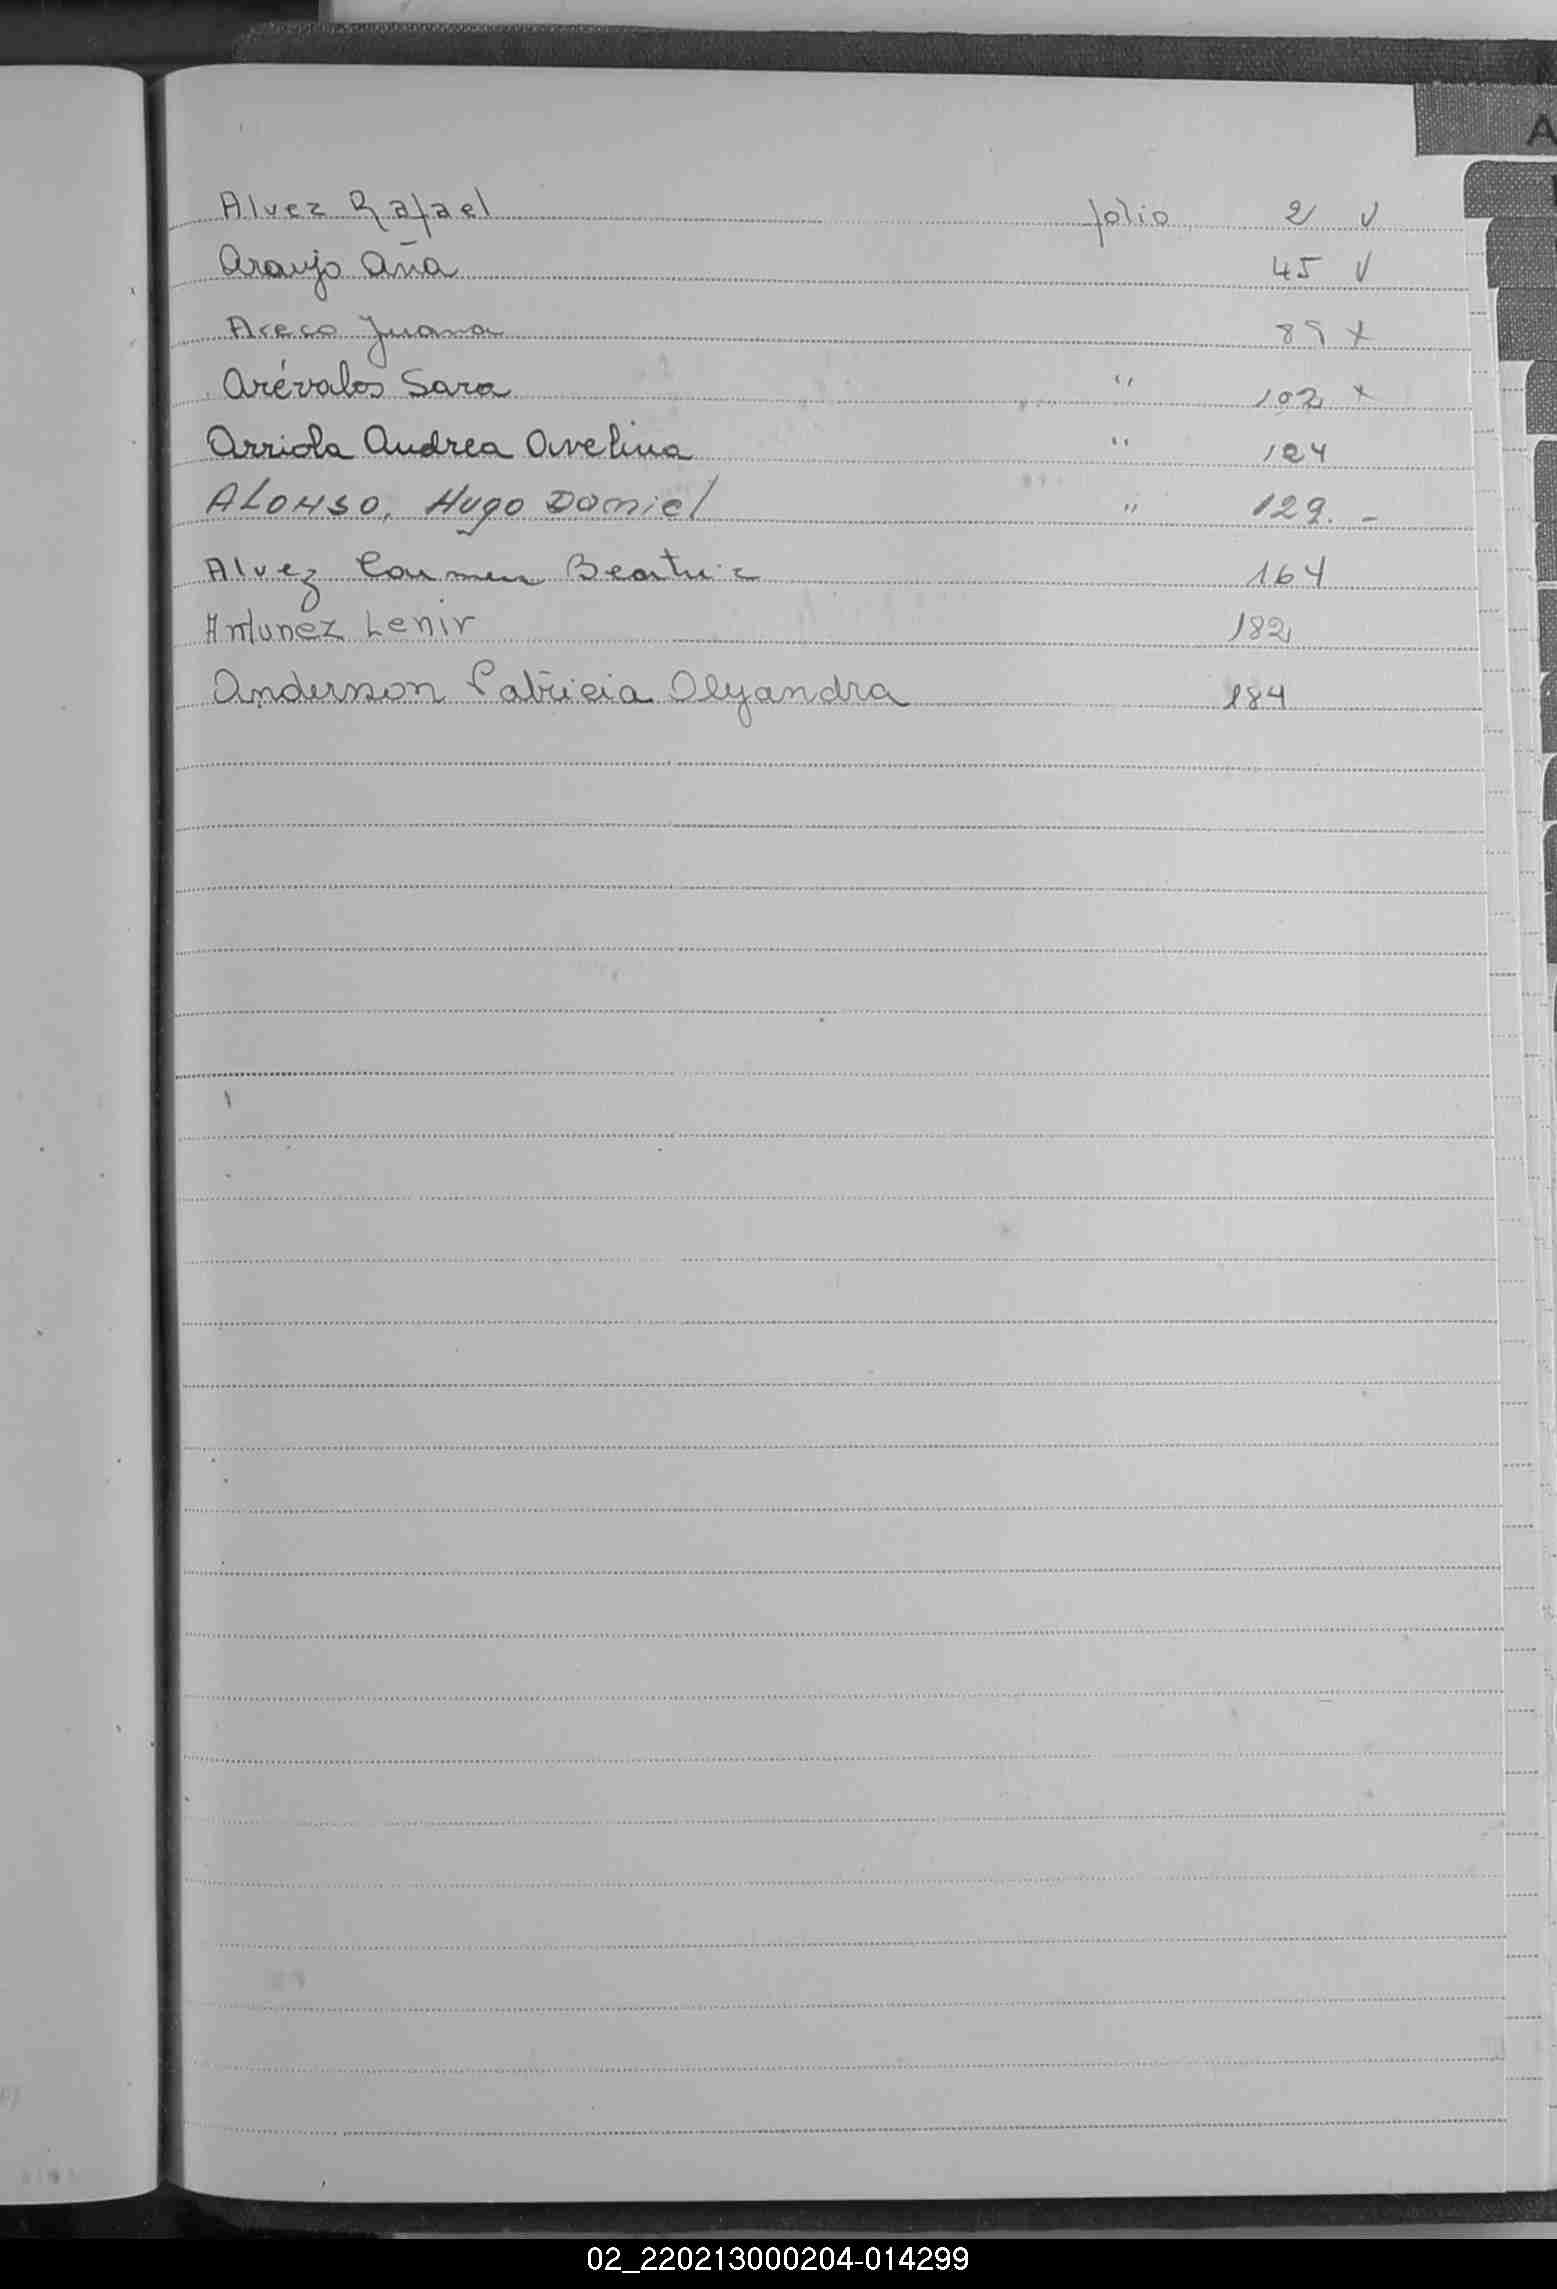 A
Alvez Rafael folio 2 V
Araujo Aña 45 V
Areco Juana 85 x
Arévalos Sara " 102 x
Arriola Andrea Avelina " 124
ALONSO, Hugo Daniel " 129. -
Alvez Carmen Beatriz 164
Antunez Lenir 182
Anderson Patricia Alejandra 184
02_220213000204-014299